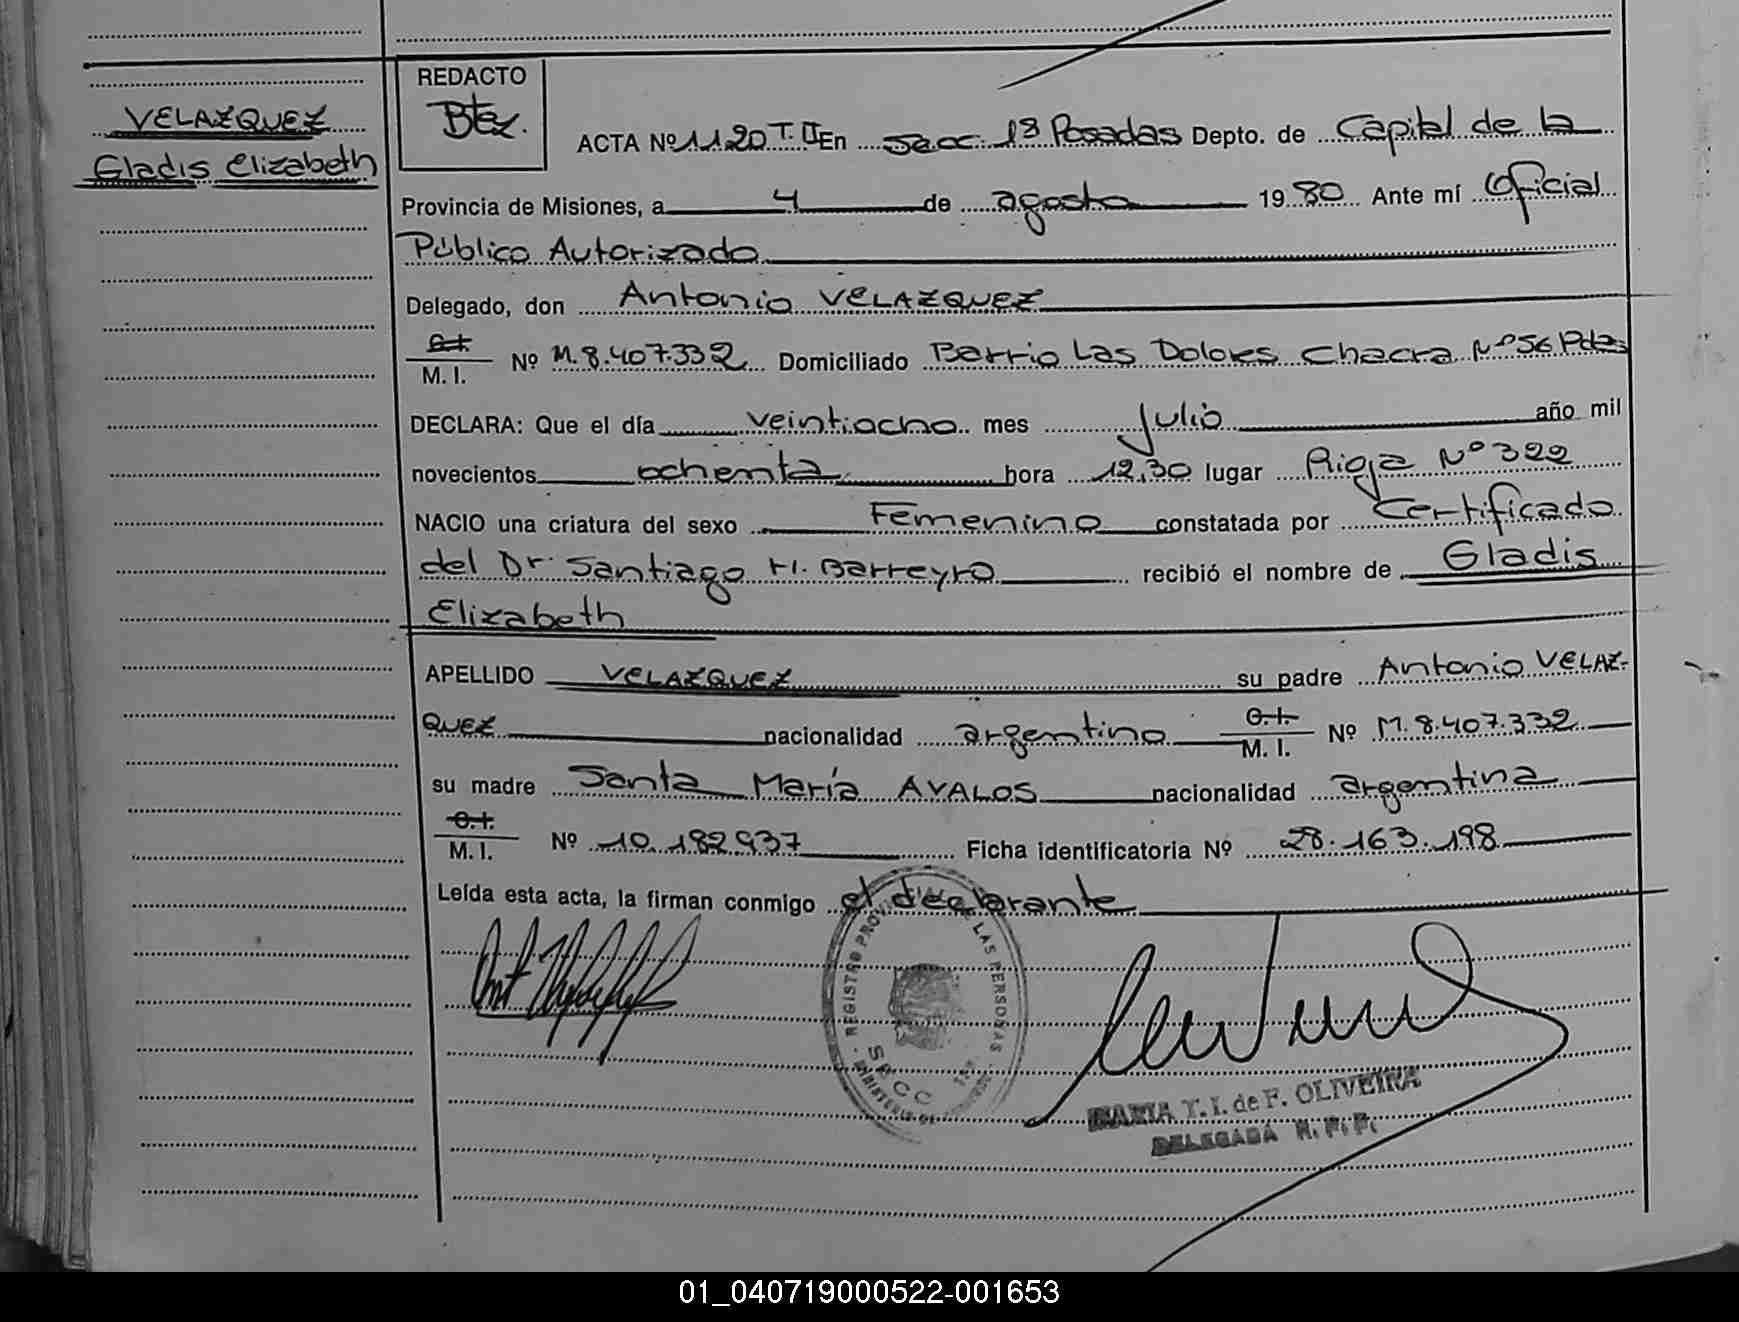 VELAZQUEZ
Gladis Elizabeth
REDACTO
Btez.
ACTA Nº 1120 T. II En Secc. 1ª Posadas Depto. de Capital de la
Provincia de Misiones, a 4 de agosto 1980 Ante mí Oficial
Público Autorizado
Delegado, don Antonio VELAZQUEZ
C.I.
M. I. Nº M. 8.407.332 Domiciliado Barrio Las Dolores Chacra Nº 56 Pdas
DECLARA: Que el día veintiocho mes Julio año mil
novecientos ochenta hora 12,30 lugar Rioja Nº 322
NACIO una criatura del sexo Femenino constatada por Certificado
del Dr Santiago H. Barreyro recibió el nombre de Gladis
Elizabeth
APELLIDO VELAZQUEZ su padre Antonio VELAZ-
QUEZ nacionalidad argentino C.I. M. I. Nº M. 8.407.332
su madre Santa María AVALOS nacionalidad argentina
C.I.
M. I. Nº 10.182.937 Ficha identificatoria Nº 28.163.198
Leída esta acta, la firman conmigo el declarante
REGISTRO PROVINCIAL DE LAS PERSONAS
MARIA T. I. de F. OLIVEIRA
DELEGADA R. P. P.
01_040719000522-001653